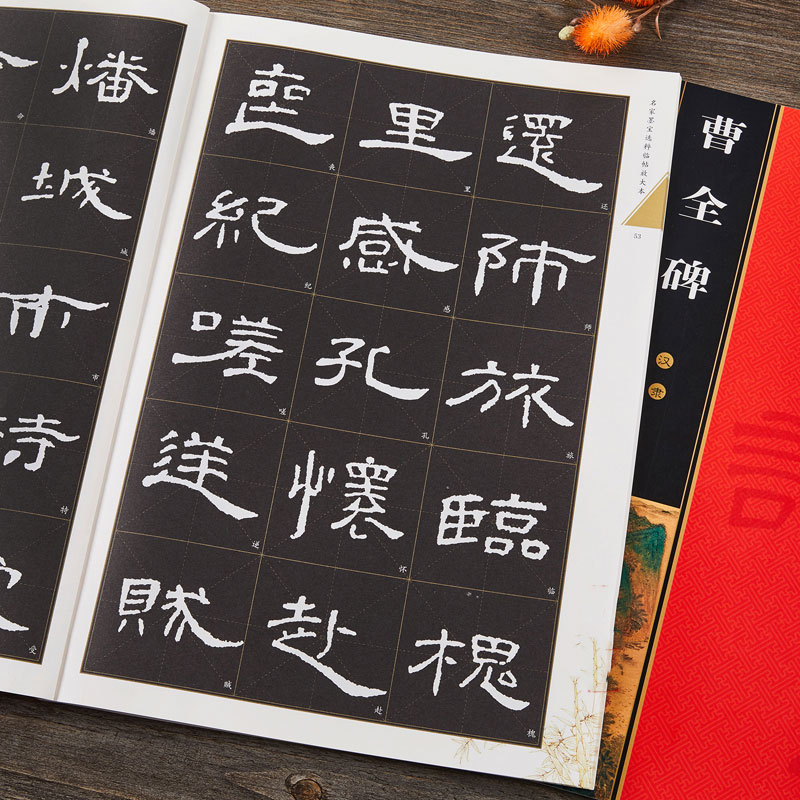 曹全碑
汉隶
名家墨宝选粹临帖放大本
53
還師旅臨槐
还师旅临槐
里感孔懷赴
里感孔怀赴
喪紀嗟逆賊
丧纪嗟逆贼
幡城市
幡城市特受
命